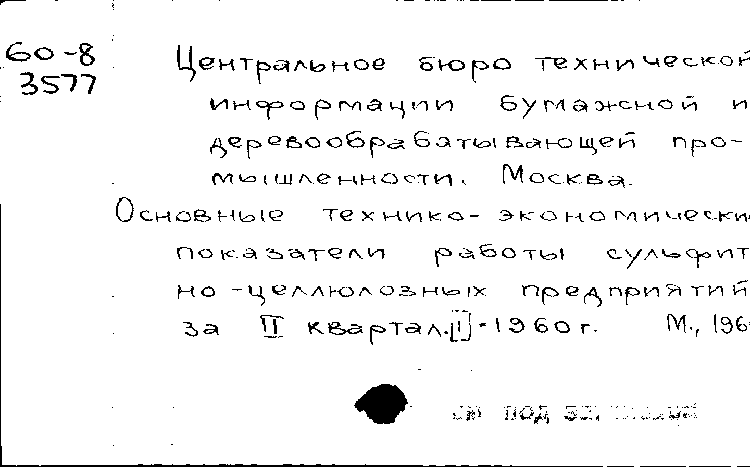 60-8
3577
Центральное бюро технической
информации бумажной и
деревообрабатывающей про-
мышленности. Москва.
Основные технико-экономически
показатели работы сульфит
но-целлюлозных предприятий
за II квартал. 1960г. М., 196
под